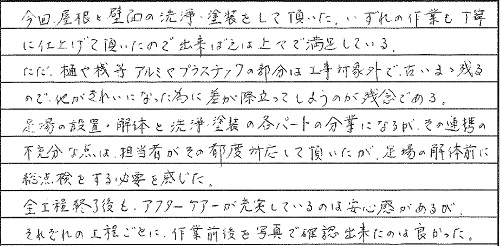 今回、屋根と壁面の洗浄・塗装をして頂いた。いずれの作業も丁寧
に仕上げて頂いたので出来ばえは上々で満足している。
ただ、樋や桟等アルミやプラスチックの部分は工事対象外で、古いまゝ残る
ので、他がきれいになった為に差が際立ってしまうのが残念である。
足場の設置・解体と洗浄・塗装の各パートの分業になるが、その連携の
不充分な点は、担当者がその都度対応して頂いたが、足場の解体前に
総点検をする必要を感じた。
全工程終了後も、アフターケアーが充実しているのは安心感があるが、
それぞれの工程ごとに、作業前後を写真で確認出来たのは良かった。